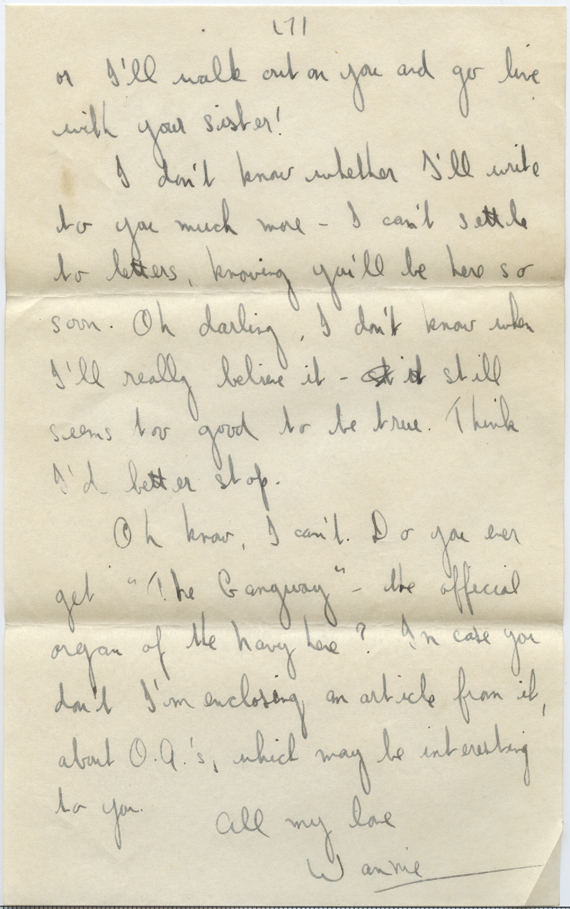 (7)
or I'll walk out on you and go live
with your sister!
I don't know whether I'll write
to you much more - I can't settle
to letters, knowing you'll be here so
soon. Oh darling, I don't know when
I'll really believe it - it still
seems too good to be true. Think
I'd better stop.
Oh know, I can't. Do you ever
get "The Gangway" - the official
organ of the Navy here? In case you
don't I'm enclosing an article from it,
about O.A.'s, which may be interesting
to you.
All my love